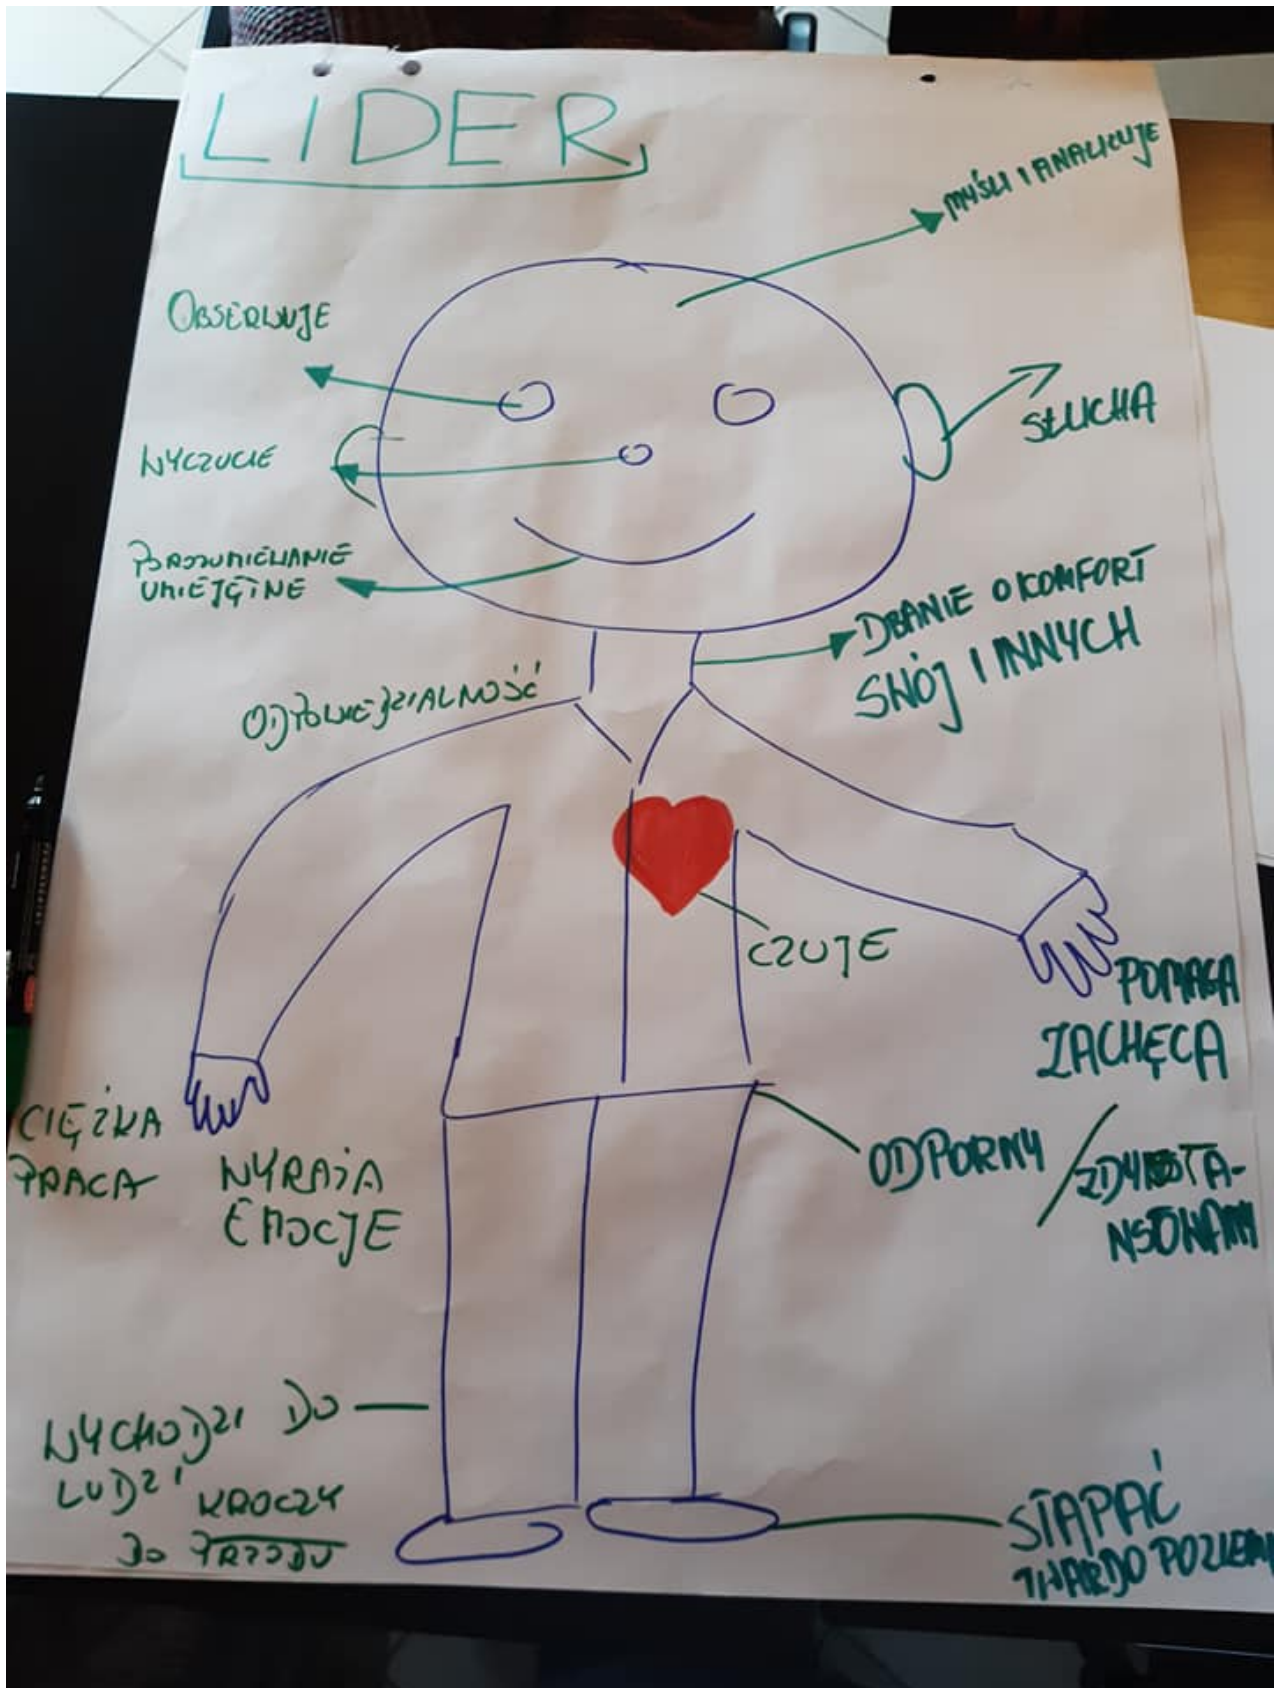 LIDER
MYŚLI I ANALIZUJE
OBSERWUJE
SŁUCHA
WYCZUCIE
POROZUMIEWANIE
UMIEJĘTNE
DBANIE O KOMFORT
SWÓJ I INNYCH
ODPOWIEDZIALNOŚĆ
CZUJE
POMAGA
ZACHĘCA
CIĘŻKA
PRACA
WYRAŻA
EMOCJE
ODPORNY / ZDYSTA-
NSOWANY
WYCHODZI DO
LUDZI
KROCZY
DO PRZODU
STĄPAĆ
TWARDO PO ZIEMI